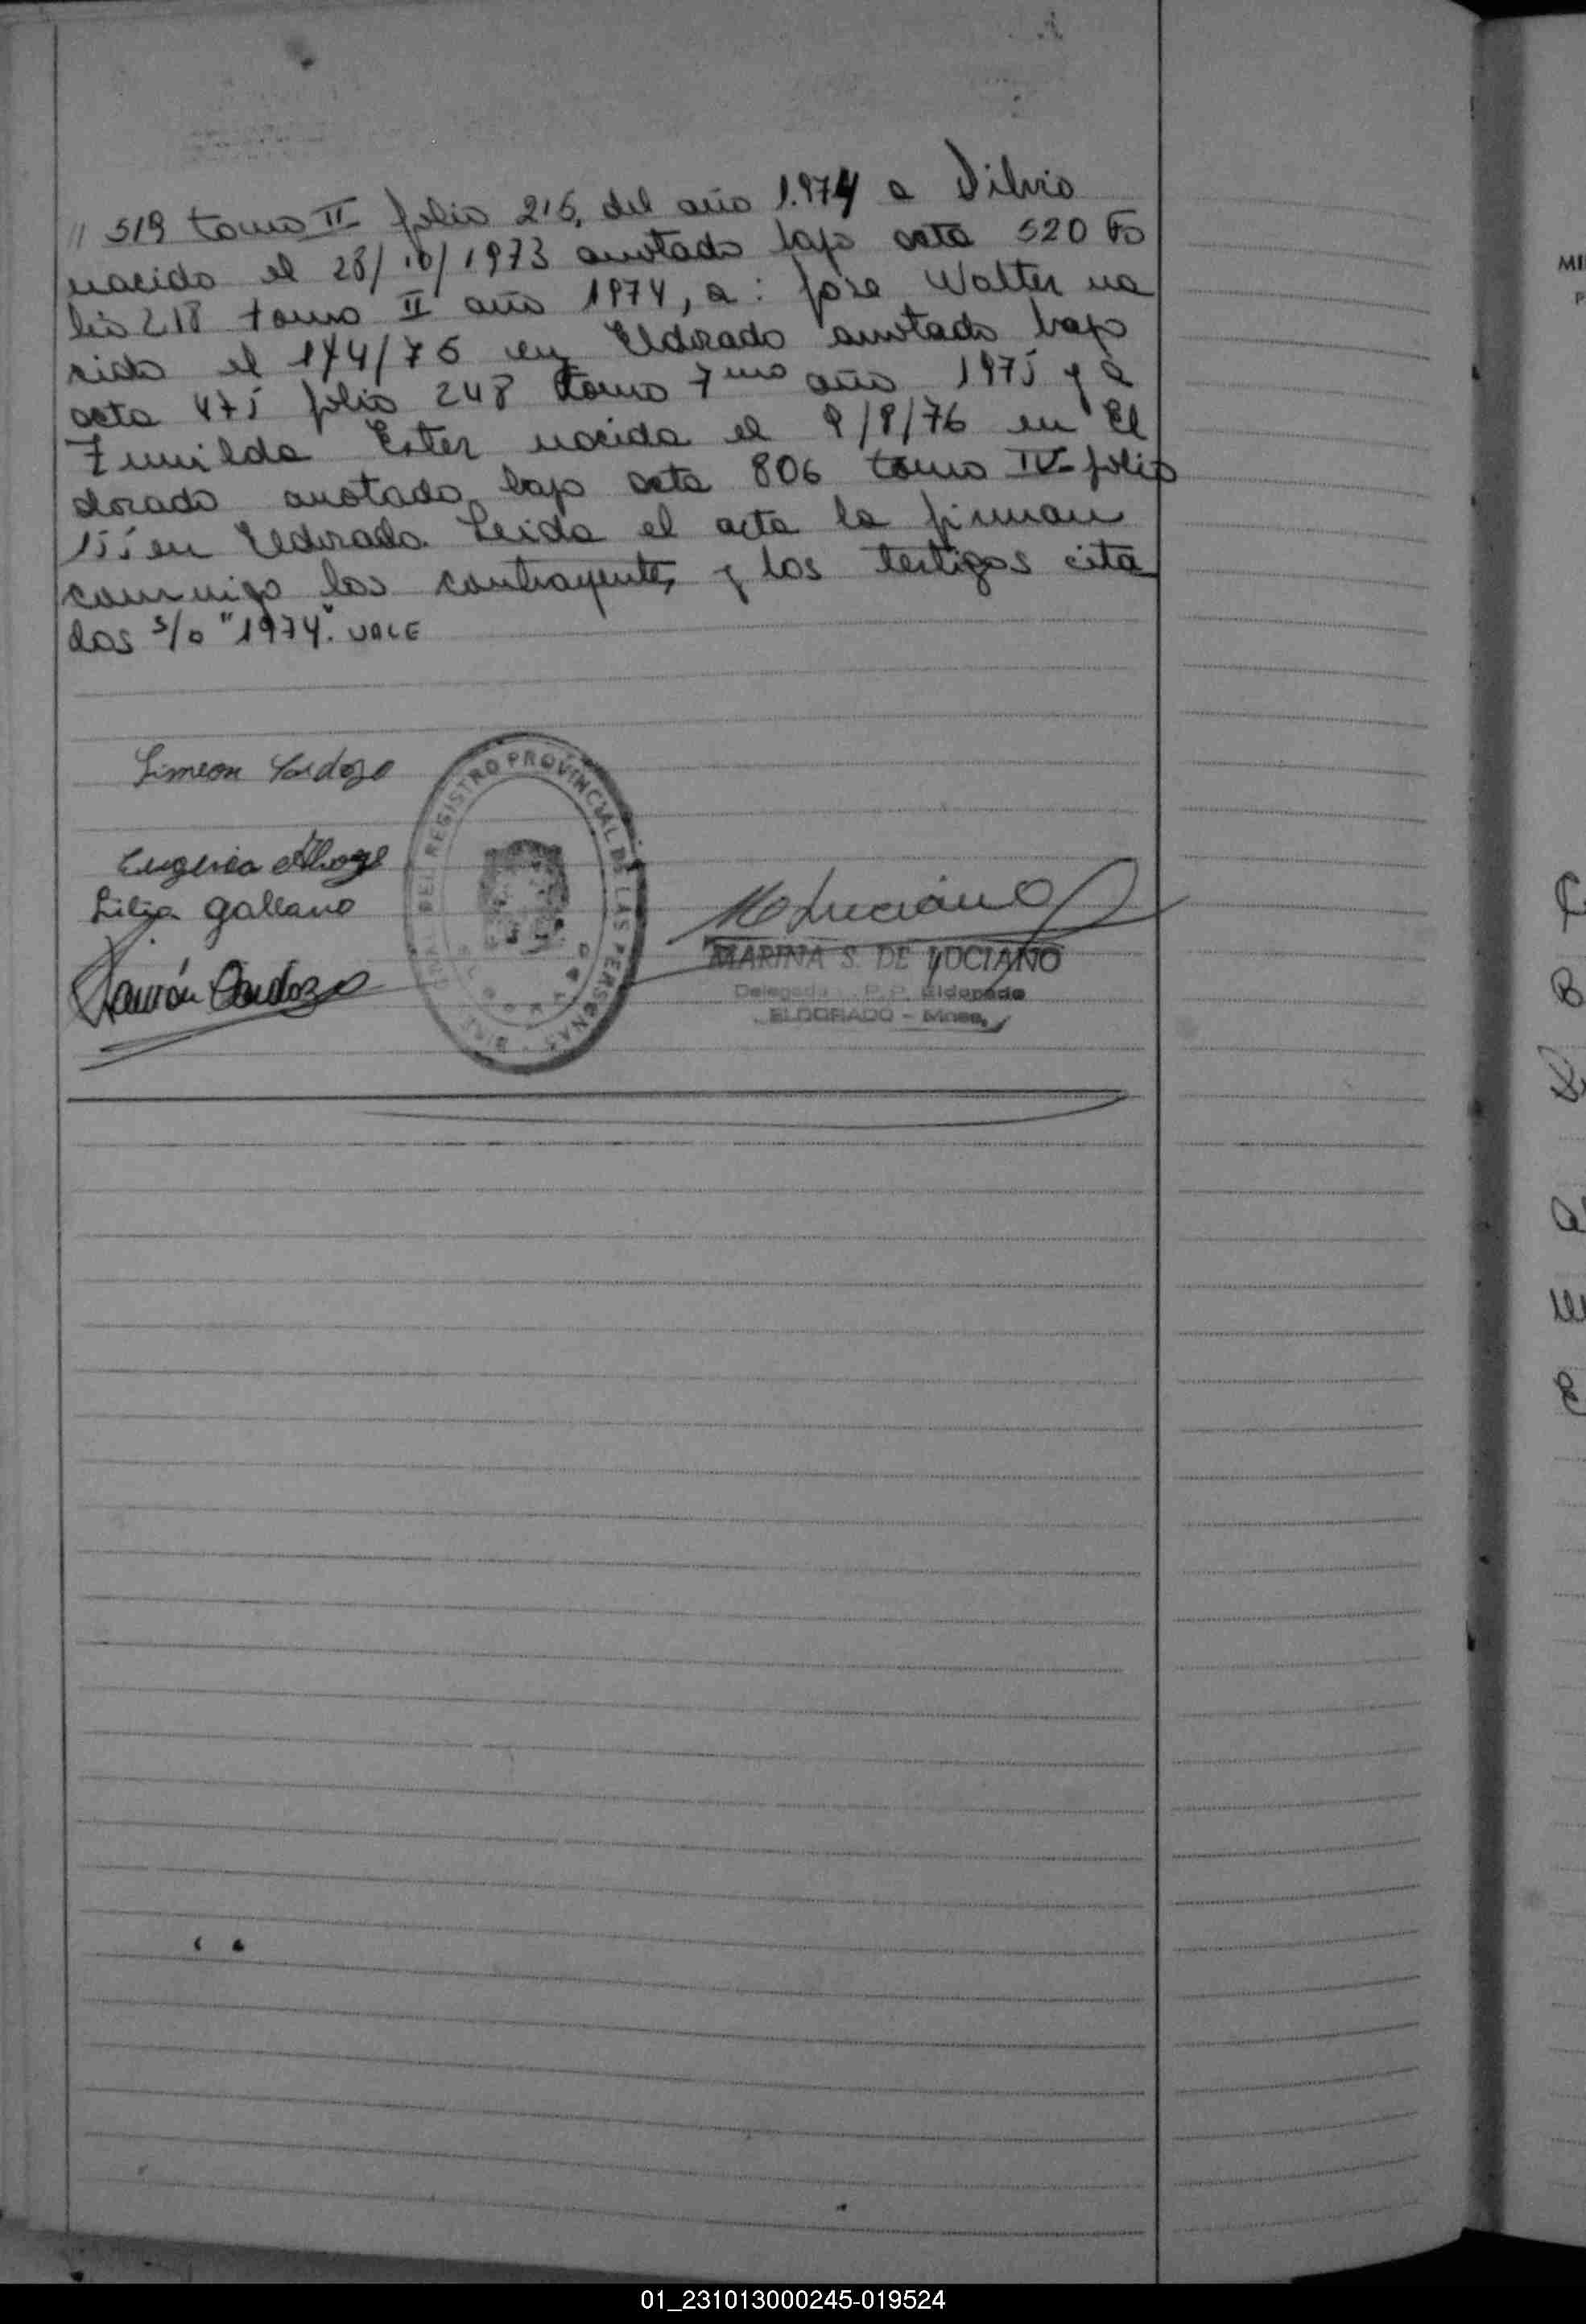 // 519 tomo II folio 215, del año 1.974 a Silvio
nacido el 28/10/1973 anotado bajo acta 520 Fo
lio 218 tomo II año 1974, a: Jose Walter na
cido el 1/4/75 en Eldorado anotado bajo
acta 475 folio 248 tomo 7mo año 1975 y a
Zunilda Ester nacida el 9/8/76 en El
dorado anotado bajo acta 806 tomo IV- folio
155 en Eldorado. Leida el acta la firman
conmigo los contrayentes y los testigos cita
dos s/o "1974". VALE
Simeon Cardozo
Eugenia
Lilia Gallano
Ramón Cardozo
REGISTRO PROVINCIAL DE LAS PERSONAS
M Luciano
MARINA S. DE LUCIANO
Delegada R.P.P. Eldorado
ELDORADO - Mnes.
01_231013000245-019524